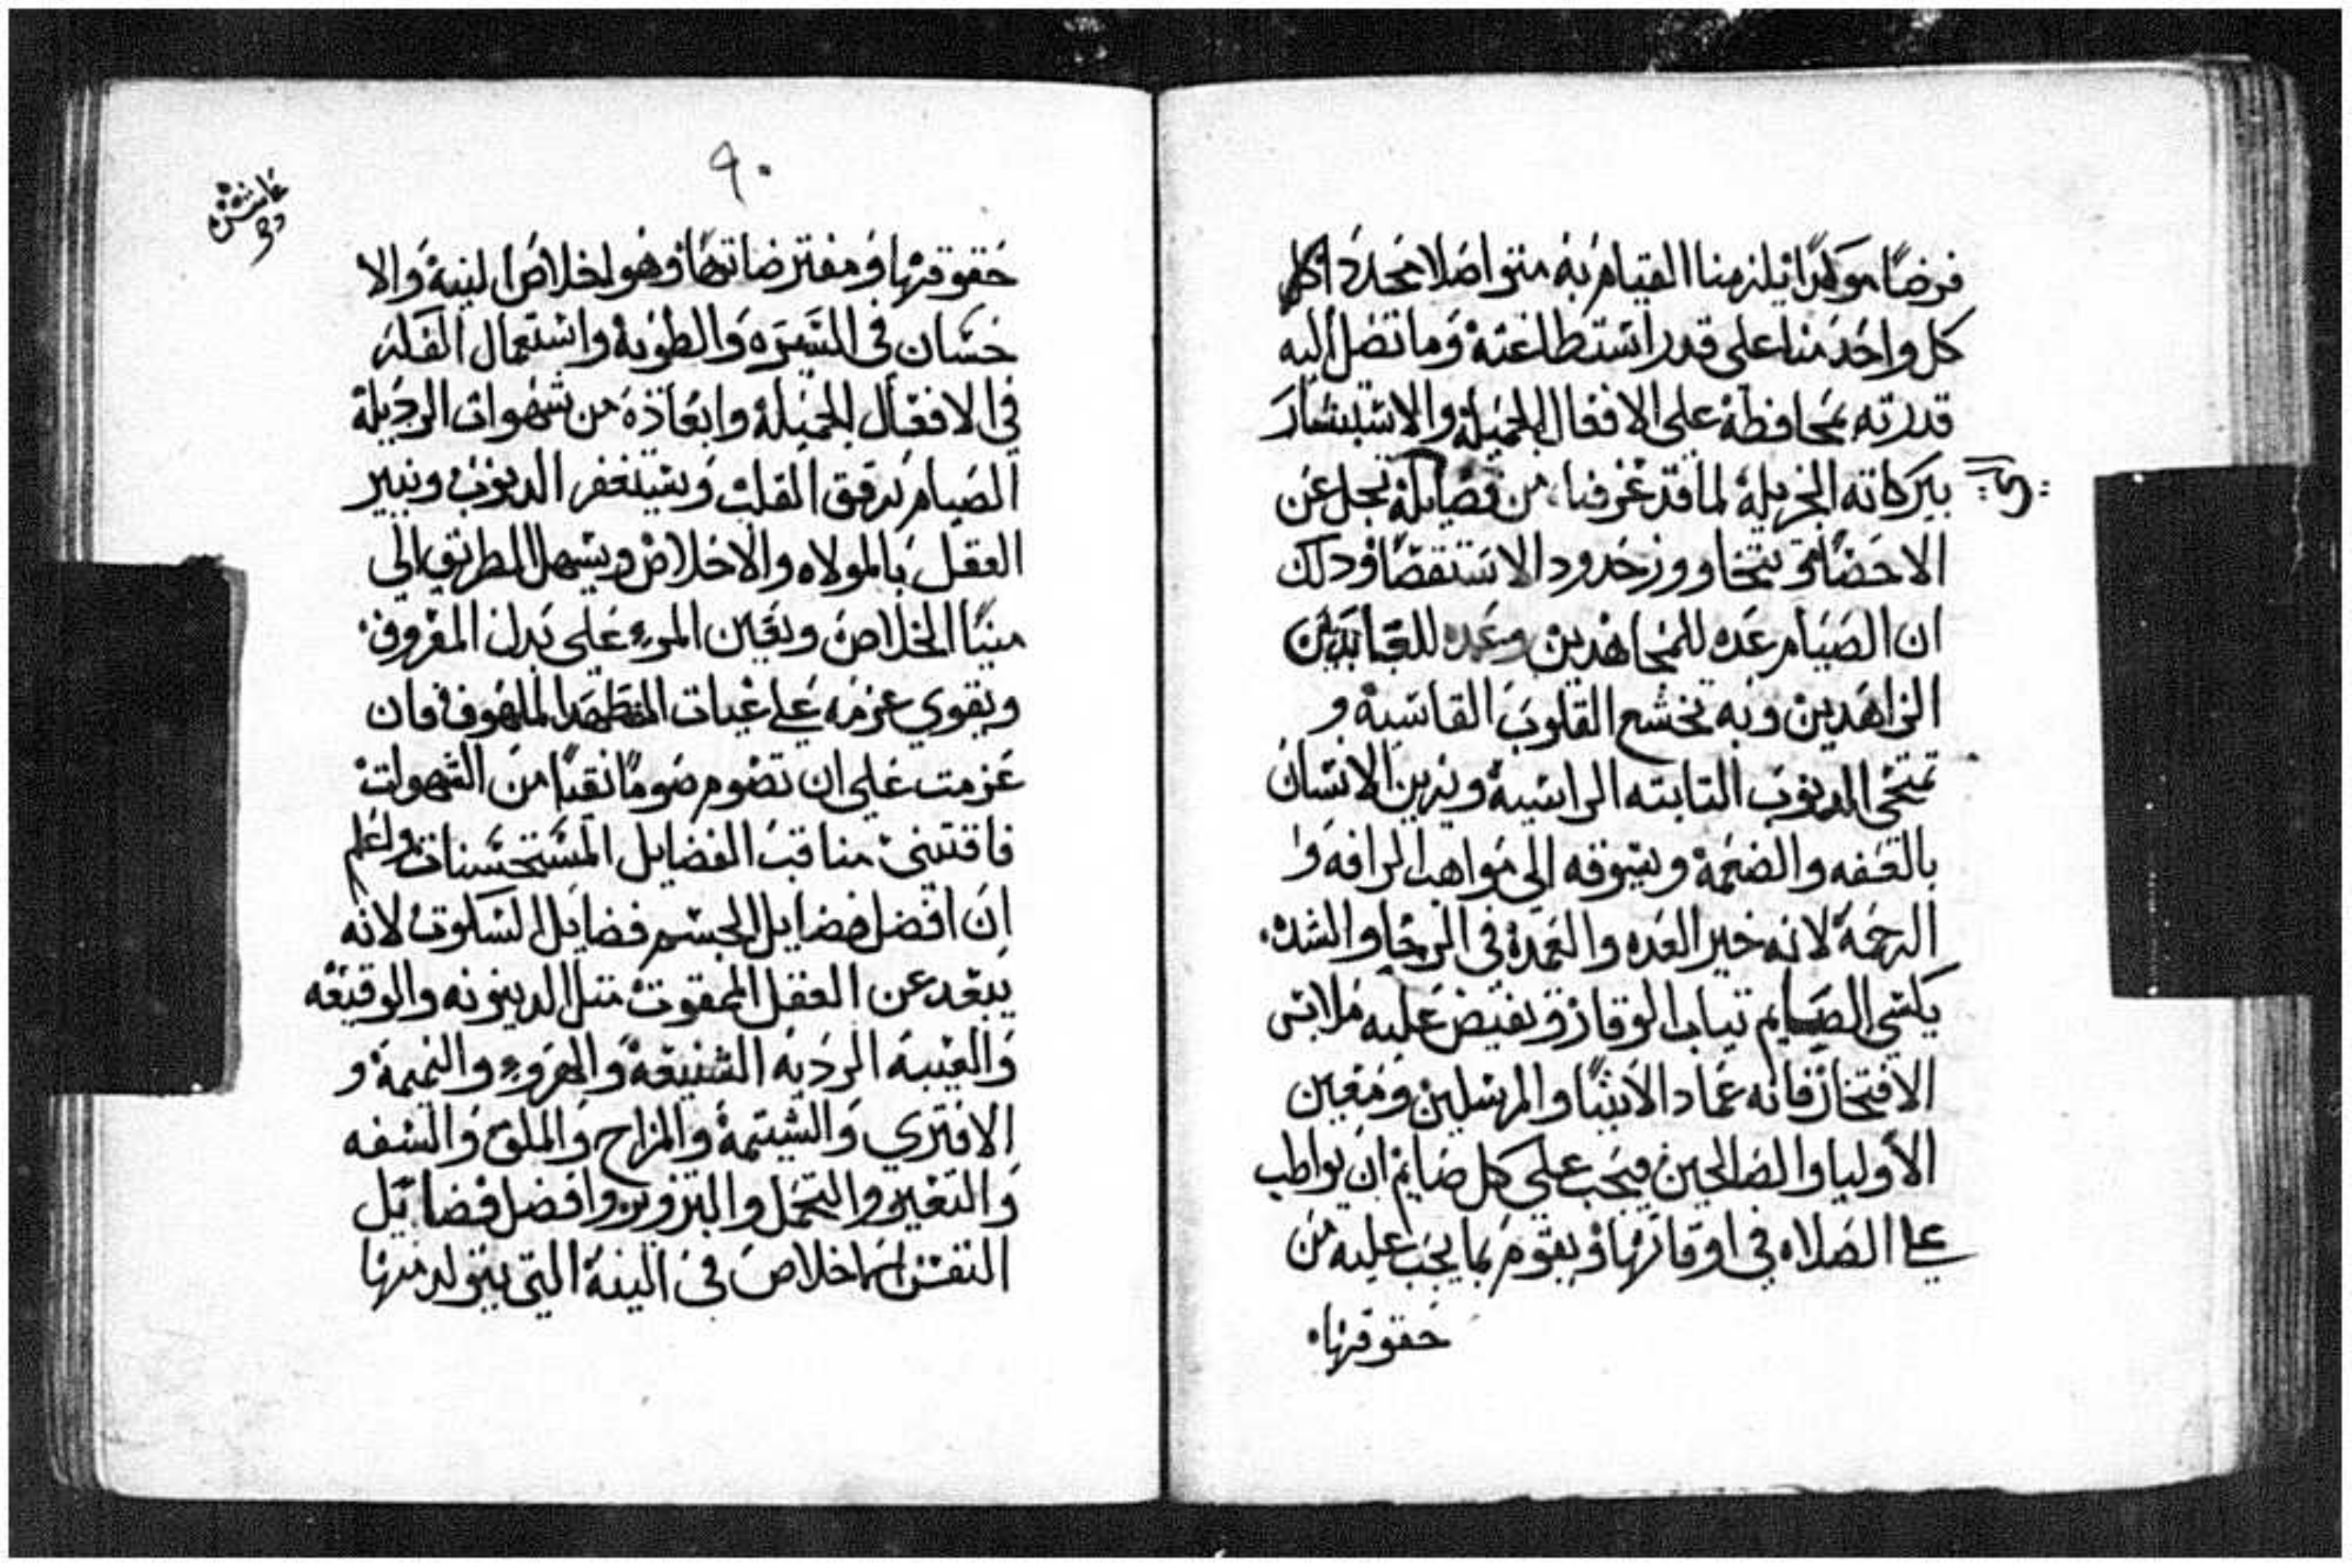 فرضًا موكدًا يلزمنا القيام به متواصلا مجددًا
كل واحد منا على قدر استطاعته وما تصل اليه
قدرته محافظة على الافعال الجميلة والاستبشار
ببركاته الجزيلة لما قد عرفنا من فضايله تجل عن
الاحصا وتتجاوز حدود الاستقصا وذلك
ان الصيام عده للمجاهدين وعمده للعابدين
الزاهدين وبه تخشع القلوب القاسية و
تمتحى الدنوب التابته الراسية ويزين الانسان
بالعفه والضمة ويشوقه الى مواهب الرافه و
الرحمة لانه خير العده والعمدة في الرخا والشده
يكتسي الصايم تياب الوقار وتفيض عليه ملابس
الافتخار فانه عماد الانبيا والمرسلين ومعين
الاوليا والصالحين فيجب على كل صايم ان يواطب
على الصلاه في اوقاتها ويقوم بما يجب عليه من
حقوقها
٩٠
حقوقها ومفترضاتها وهو اخلاص النية والا
حسان في السيره والطوية واستعمال الفكر
في الافعال الجميلة وابعاده من شهوات الرديلة
الصيام يرقق القلب ويستغفر الدنوب وينير
العقل بالمولاه والاخلاص ويسهل الطريق الى
مينا الخلاص ويعين المرء على بدل المعروف
ويقوي عزمه على غيات المضطهد الملهوف فان
عزمت على ان تصوم صومًا نقيًا من الشهوات
فاقتنى مناقب الفضايل المستحسنات واعلم
ان افضل فضايل الجسم فضايل السكوت لانه
يبعد عن العقل الممقوت متل الدينونه والوقيعه
والغيبة الرديه الشنيعة والهزوء والنميمة و
الافتري والشتيمة والمزاح والملق والسفه
والتعيير والتحمل والتزوير وافضل فضايل
النفس اخلاص في النية التي يتولد منها